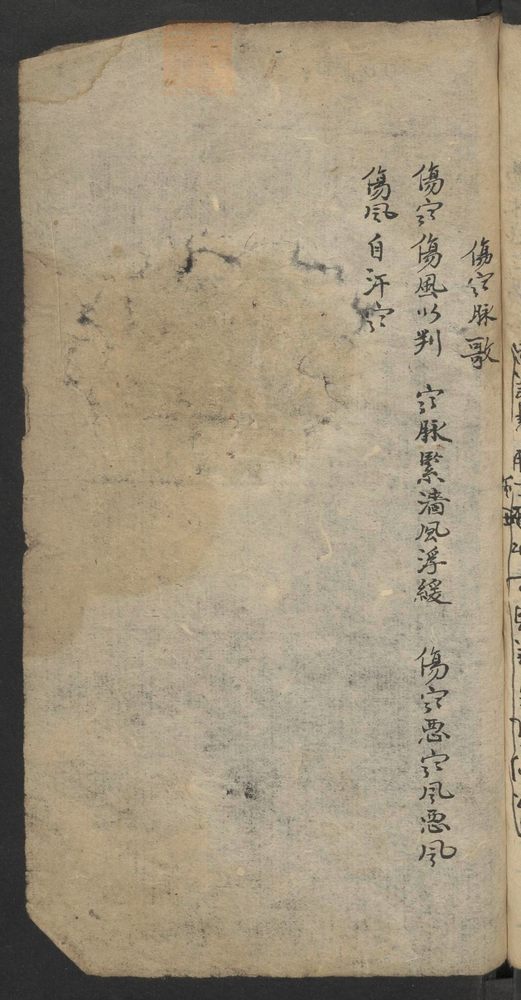 傷寒脉歌
傷寒傷風以判 寒脉緊濇風浮緩 傷寒悪寒風悪風
傷風自汗寒